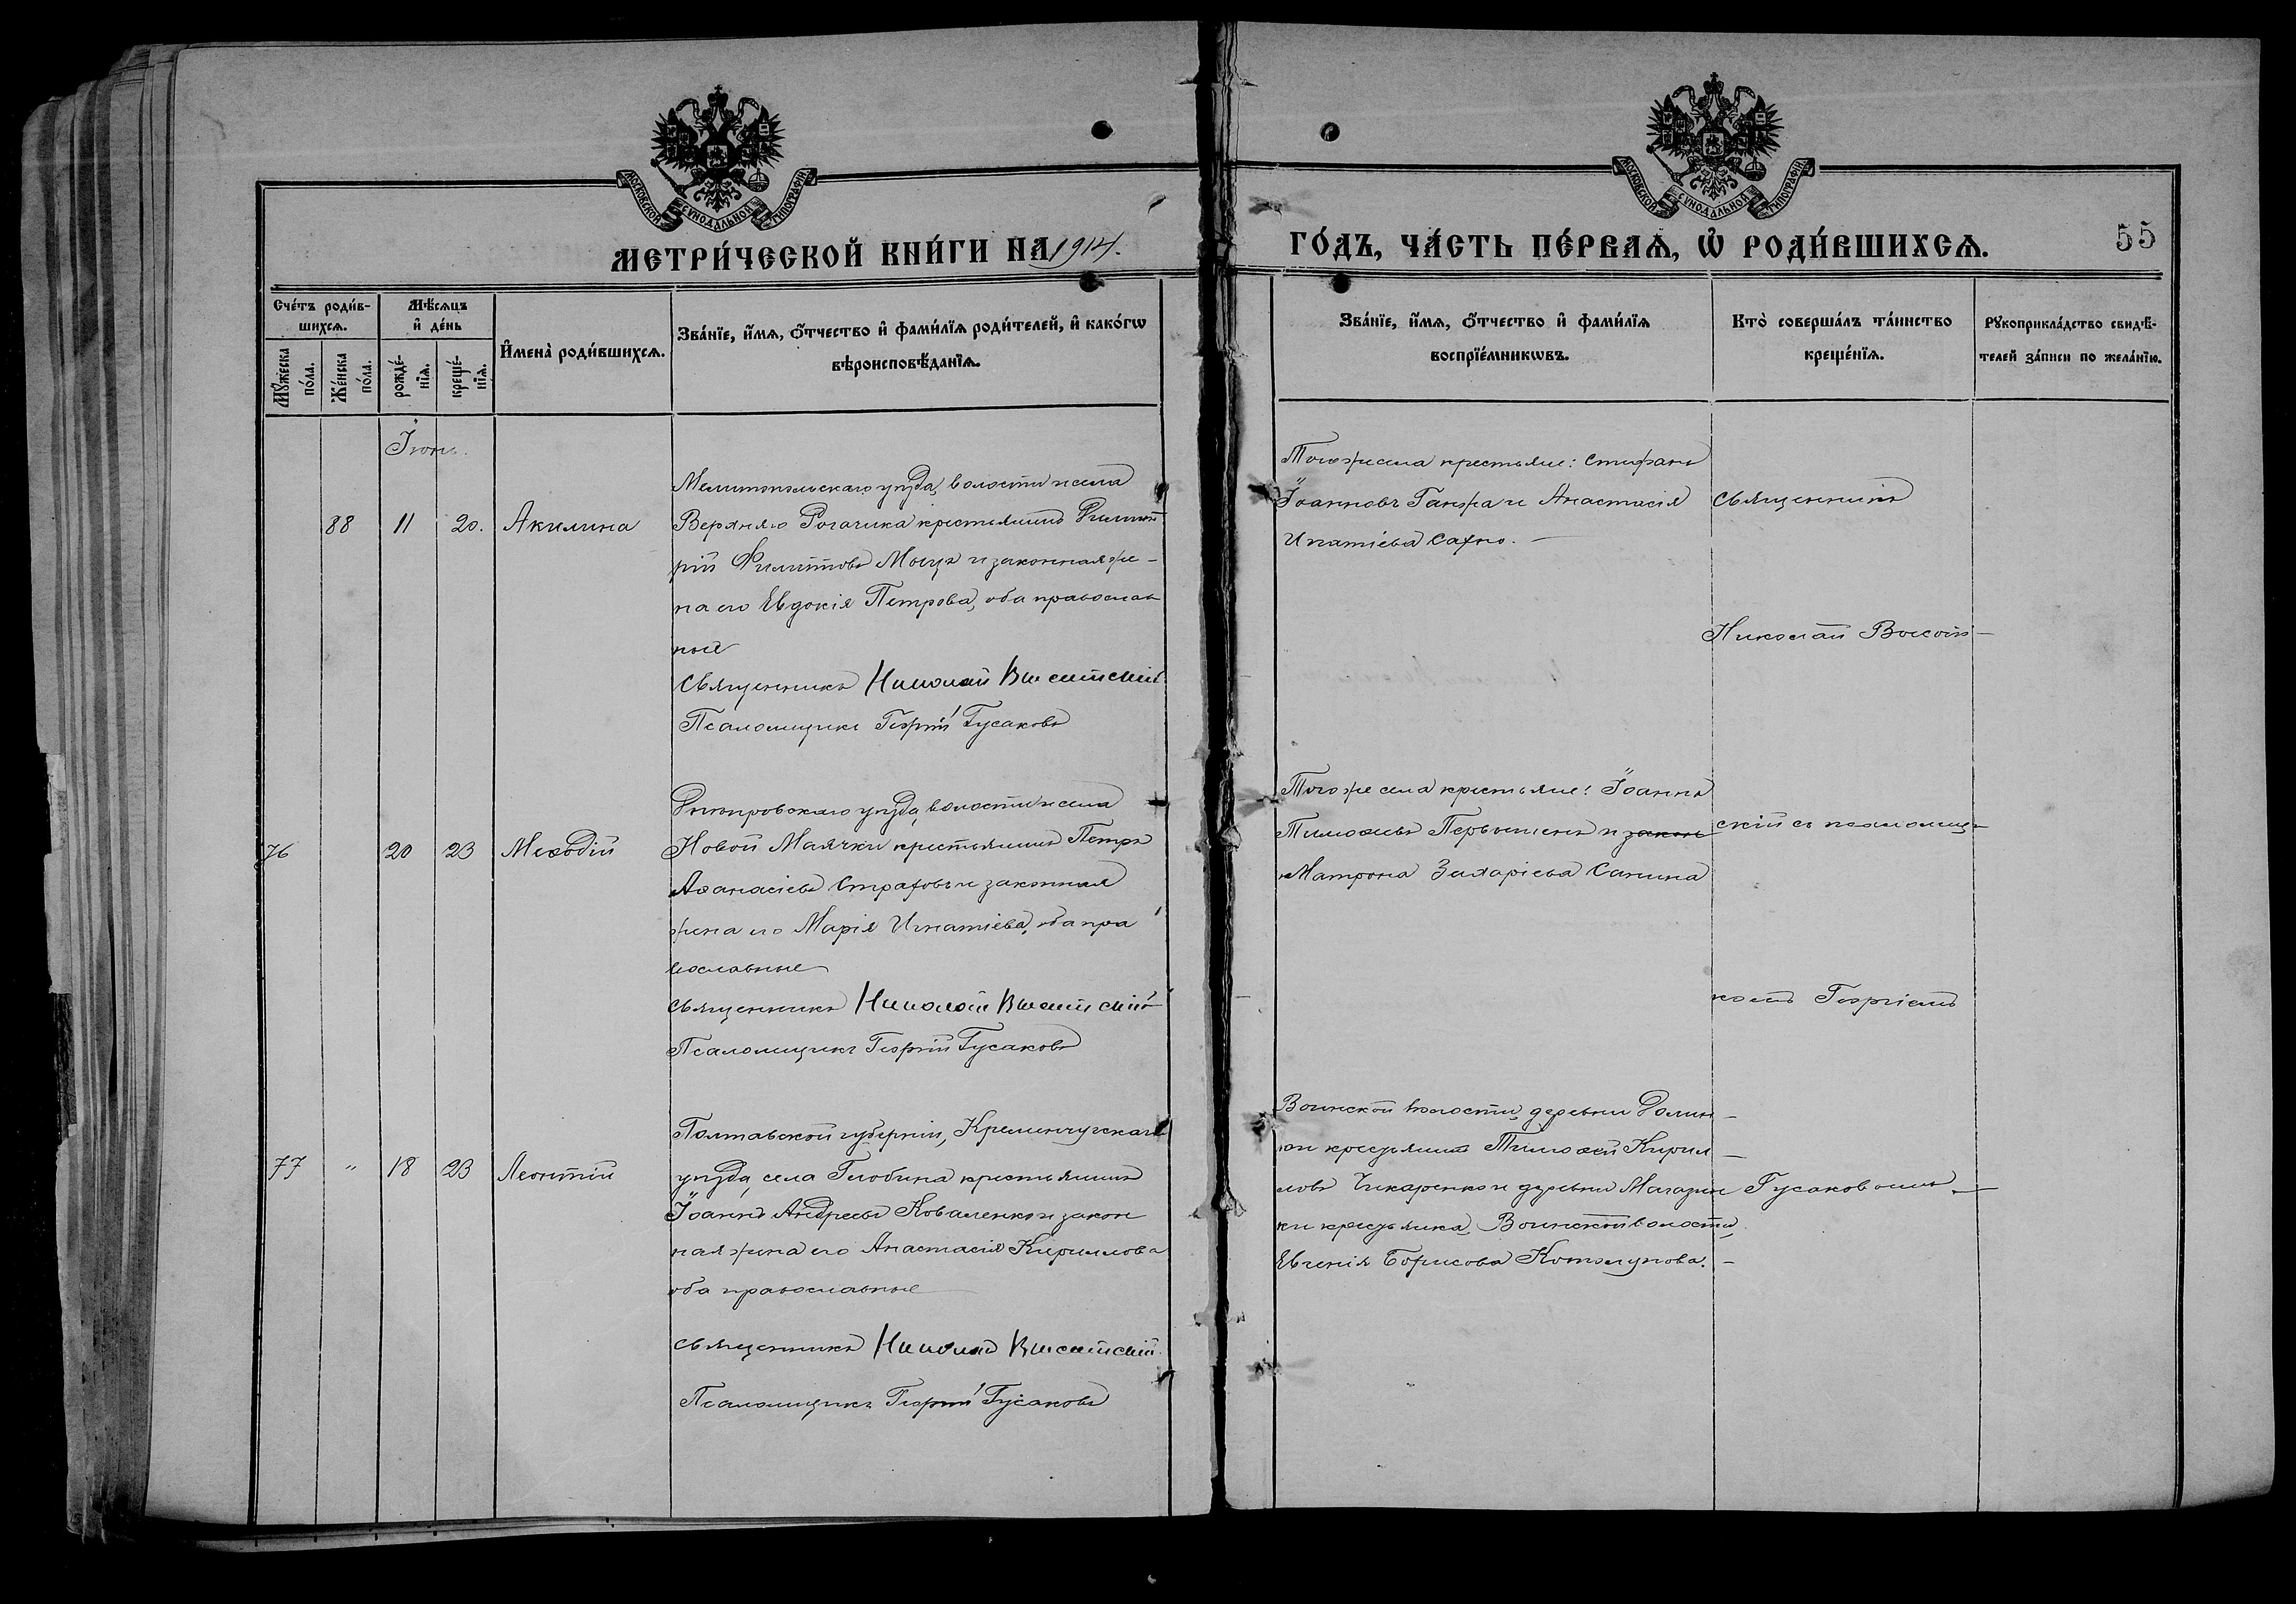 МОСКОВСКОЙ СУНОДАЛЬНОЙ ТИПОГРАФІИ
МОСКОВСКОЙ СУНОДАЛЬНОЙ ТИПОГРАФІИ
МЕТРИ́ЧЕСКОЙ КНИ́ГИ НА 1914.
ГО́ДЪ, ЧА́СТЬ ПЕ́РВАѦ, Ѡ РОДИ́ВШИХСѦ.
55
Сче́тъ роди́в-
шихсѧ.
Мꙋжеска по́ла.
Же́нска по́ла.
Мѣ́сѧцъ
и҆ де́нь
рожде́-
нїѧ.
креще́-
нїѧ.
И҆мена̀ роди́вшихсѧ.
Зва́нїе, и҆́мѧ, ѻ҆́тчество и҆ фами́лїѧ роди́телей, и҆ како́гѡ
вѣроисповѣ́данїѧ.
Зва́нїе, и҆́мѧ, ѻ҆́тчество и҆ фами́лїѧ
воспрїе́мникѡвъ.
Кто̀ соверша́лъ та́инство
креще́нїѧ.
Рꙋкоприкла́дство свидѣ́-
телей за́писи по жела́нїю.
Іюнь.
88 11 20. Акилина
Мелитопольскаго уѣзда, волости и села
Верхняго Рогачика крестьянинъ Димит
рій Филипповъ Могуз и законная же-
на его Евдокія Петрова, оба православ
ные
Священникъ Николай Высотскій
Псаломщикъ Георгій Гусаковъ
Того же села крестьяне: Стефанъ
Іоанновъ Ганжа и Анастасія
Ипатіева Сахно.
Священникъ
Николай Высот-
76 20 23 Меѳодій
Днѣпровскаго уѣзда, волости и села
Новой Маячки крестьянинъ Петръ
Аѳанасіевъ Страховъ и законная
жена его Марія Игнатіева, оба пра
вославные
Священникъ Николай Высотскій
Псаломщикъ Георгій Гусаковъ
Того же села крестьяне: Іоаннъ
Тимоѳеевъ Первышенъ и закон
Матрона Захаріева Санина
скій съ псаломщи-
комъ Георгіемъ
77 " 18 23 Леонтій
Полтавской губерніи, Кременчугскаго
уѣзда, села Глобина крестьянинъ
Іоаннъ Андреевъ Коваленко и закон
ная жена его Анастасія Кириллова
оба православные
Священникъ Николай Высотскій
Псаломщикъ Георгій Гусаковъ
Воинской волости, деревни Долин-
ки крестьянинъ Тимоѳей Кирил-
ловъ Чикаренко и деревни Магазин
ки крестьянка Воинской волости,
Евгенія Борисова Котолупова.
Гусаковымъ